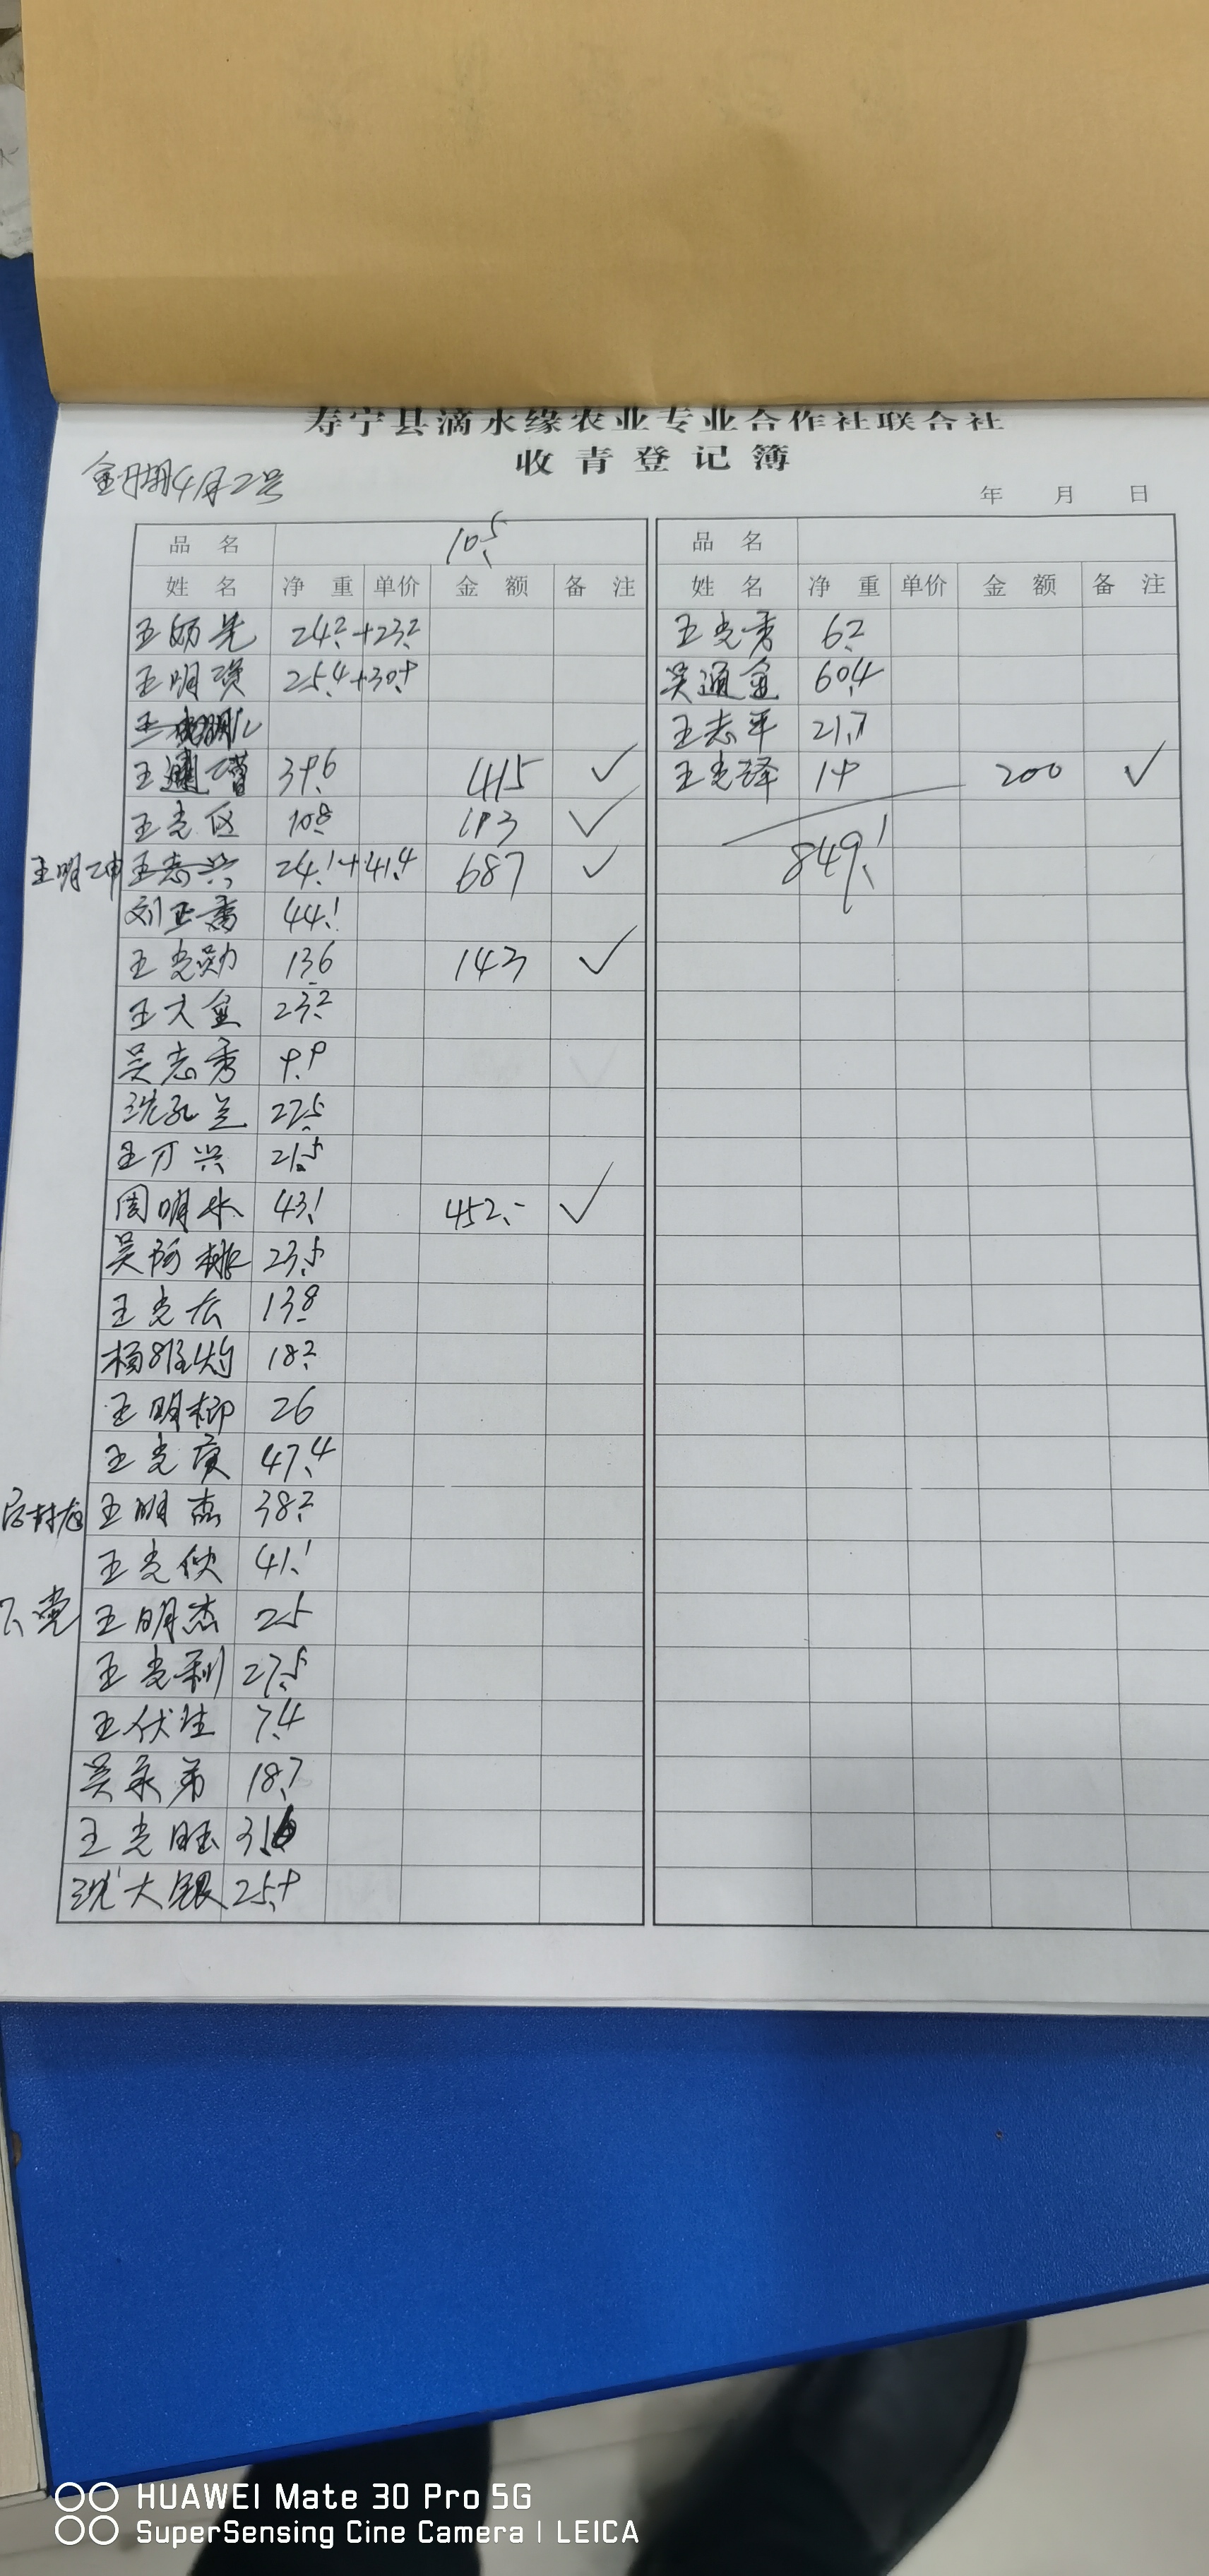 寿宁县滴水缘农业专业合作社联合社
收青登记簿
4月2号
年 月 日
品名 10.5
姓名 净重 单价 金额 备注
24.2+23.2
王明 25.4+30.9
王 39.6 415 ✓
王光 10.8 113 ✓
王明坤 王志兴 24.1+41.4 687 ✓
刘玉秀 44.1
王光勋 13.6 143 ✓
王大金 23.2
吴志秀 9.9
沈孔兰 27.5
王万兴 21.5
周明水 43.1 452.- ✓
吴阿桃 23.5
王光 13.8
杨维灼 18.2
王明柳 26
王光 47.4
王明杰 38.2
王光 41.1
王明杰 25
王光利 27.5
王伏生 7.4
吴承弟 18.7
王光旺 31.6
沈大银 25.9
品名
姓名 净重 单价 金额 备注
王光秀 6.2
吴通金 60.4
王志平 21.7
王光泽 19 200 ✓
849.1
HUAWEI Mate 30 Pro 5G
SuperSensing Cine Camera | LEICA